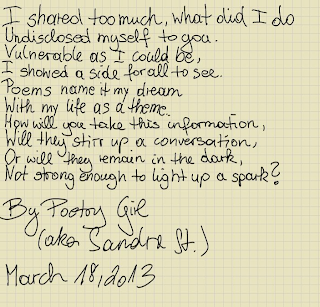 I shared too much, what did I do
Undisclosed myself to you.
Vulnerable as I could be,
I showed a side for all to see.
Poems name it my dream
With my life as a theme.
How will you take this information,
Will they stirr up a conversation,
Or will they remain in the dark,
Not strong enough to light up a spark?
By Poetry Girl
(aka Sandra St.)
March 18, 2013